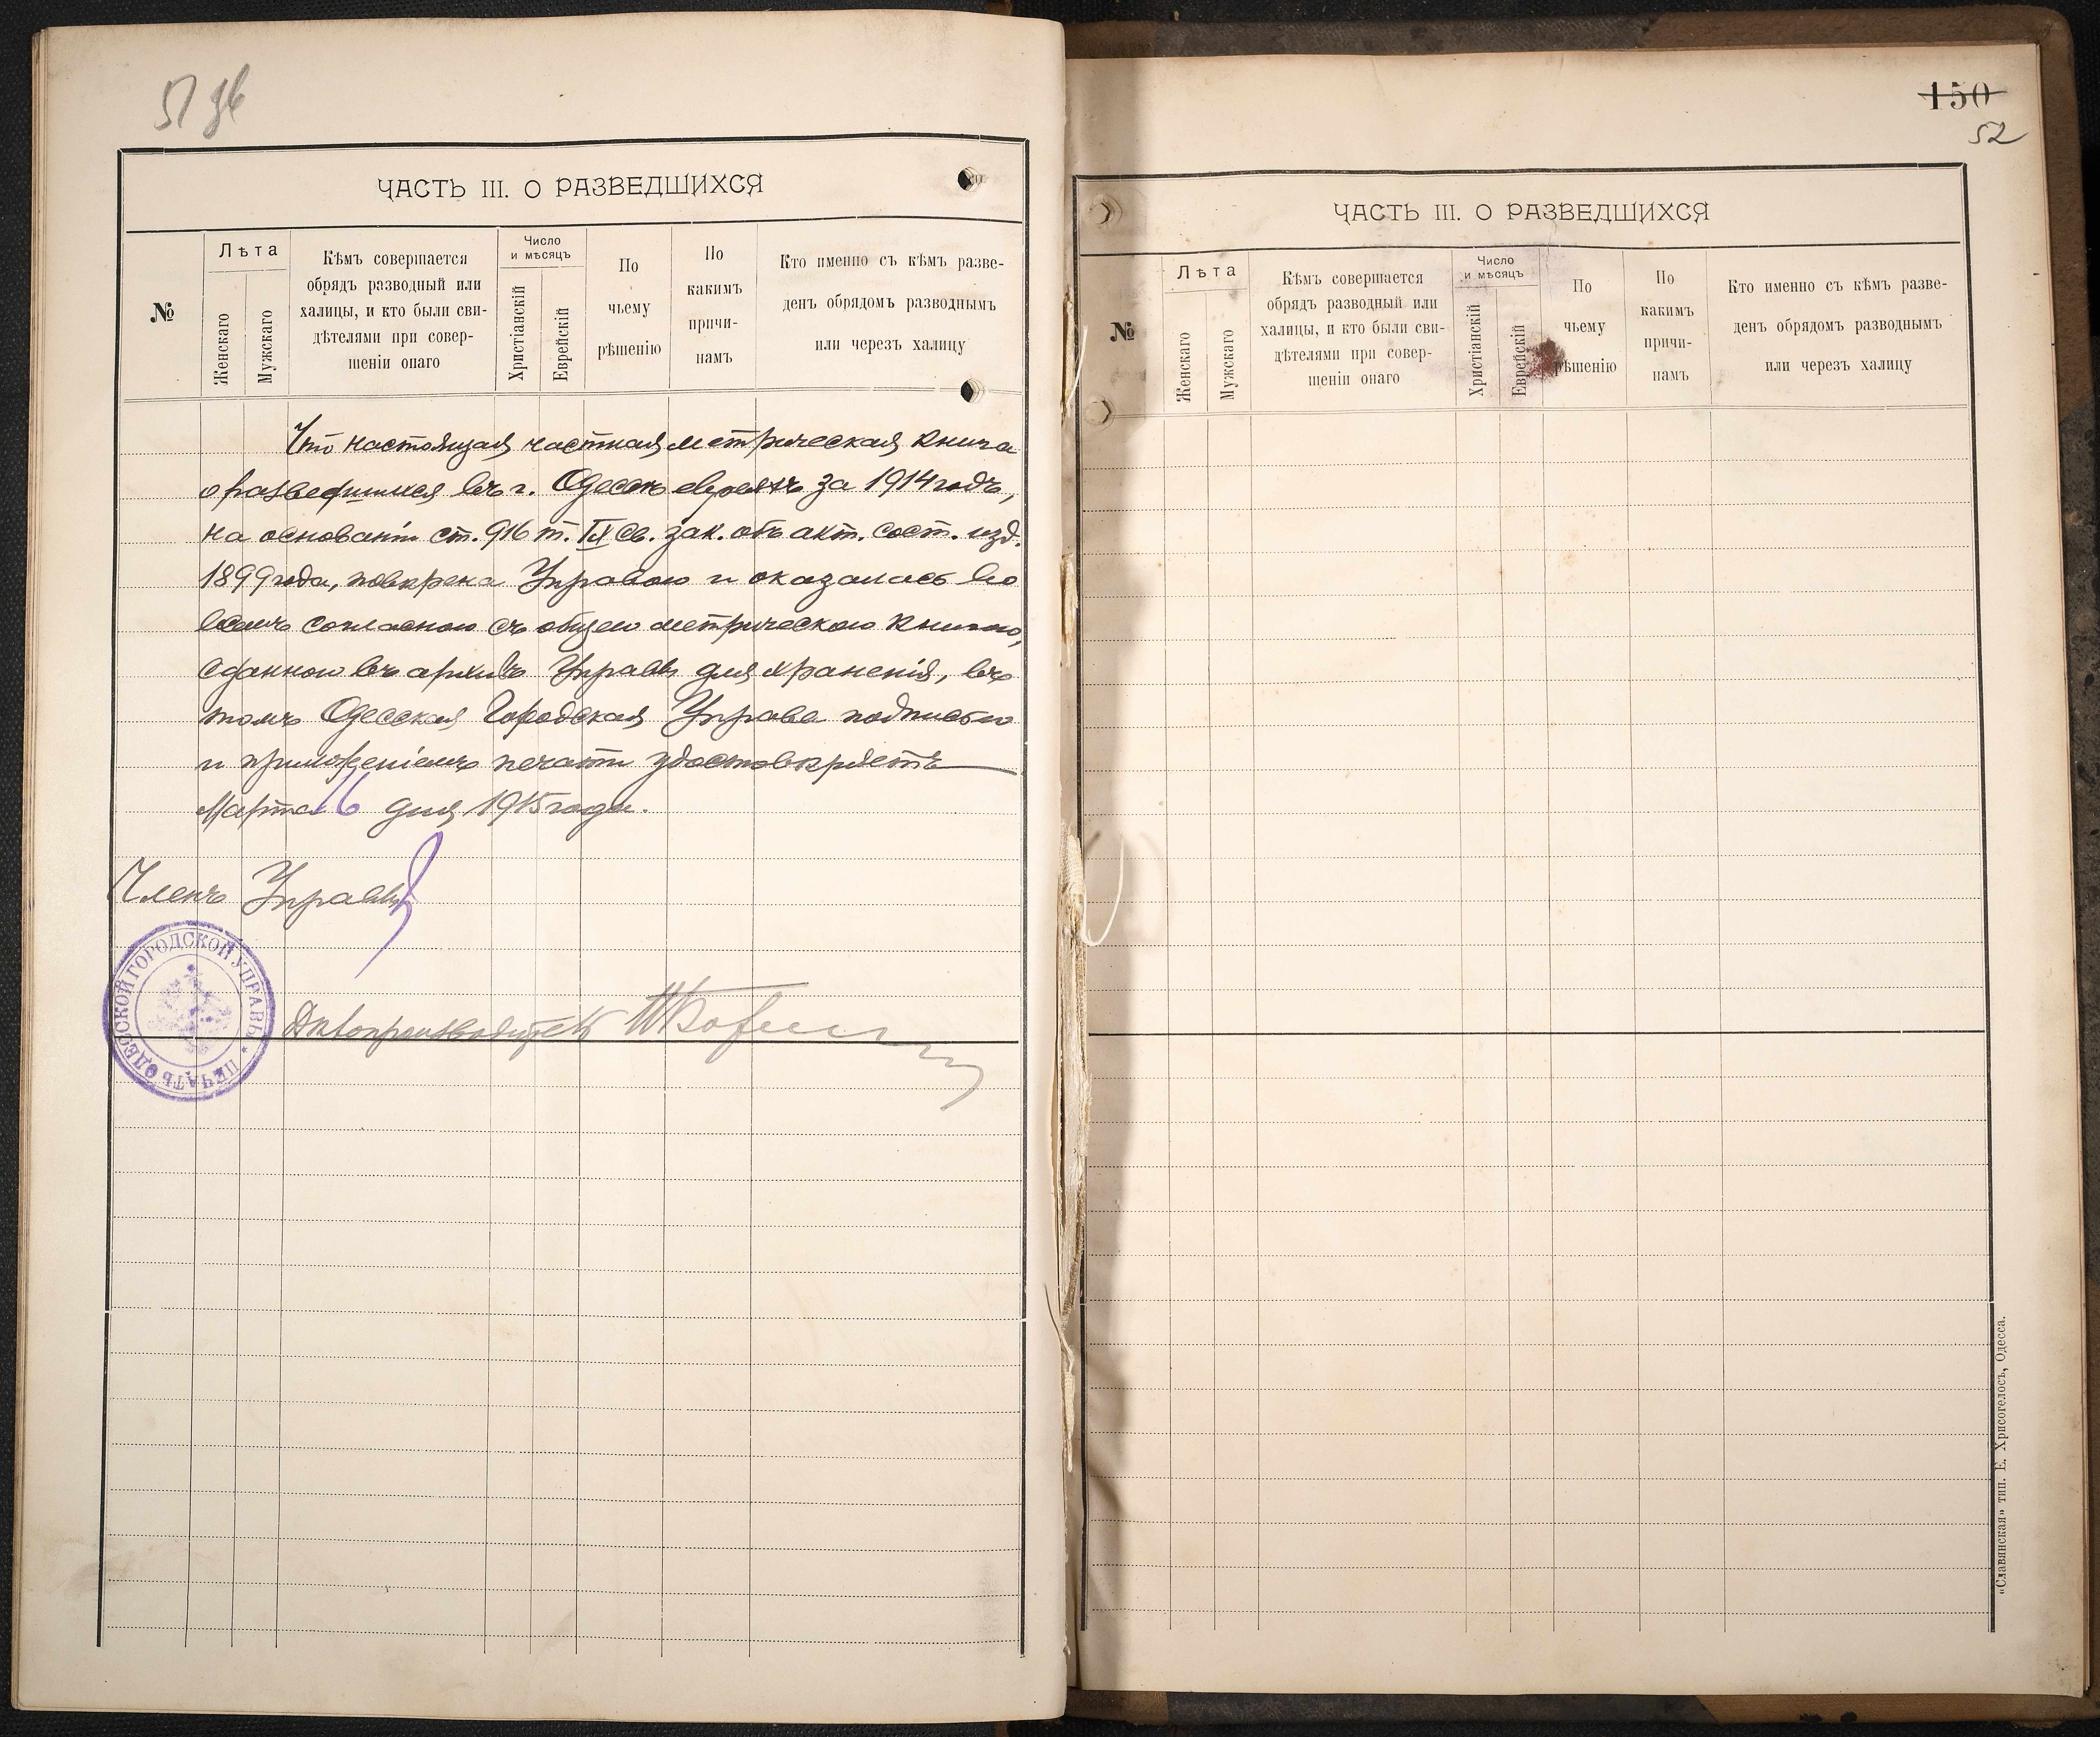 51 зв
ЧАСТЬ III. О РАЗВЕДШИХСЯ
№
Лѣта
Женскаго
Мужскаго
Кѣмъ совершается
обрядъ разводный или
халицы, и кто были сви-
дѣтелями при совер-
шеніи онаго
Число
и мѣсяцъ
Христіанскій
Еврейскій
По
чьему
рѣшенію
По
какимъ
причи-
намъ
Кто именно съ кѣмъ разве-
денъ обрядомъ разводнымъ
или черезъ халицу
Что настоящая частная метрическая книга
о разведшихся въ г. Одессѣ евреяхъ за 1914 годъ,
на основаніи ст. 916 т. IX Св. зак. объ акт. сост. изд.
1899 года, повѣрена Управою и оказалась во
всемъ согласною съ общею метрическою книгою,
сданною въ архивъ Управы для храненія, въ
томъ Одесская Городская Управа подписью
и приложеніемъ печати удостовѣряетъ
Марта 16 дня 1915 года.
Членъ Управы
ПЕЧАТЬ ОДЕССКОЙ ГОРОДСКОЙ УПРАВЫ
Дѣлопроизводитель
150
52
ЧАСТЬ III. О РАЗВЕДШИХСЯ
№
Лѣта
Женскаго
Мужскаго
Кѣмъ совершается
обрядъ разводный или
халицы, и кто были сви-
дѣтелями при совер-
шеніи онаго
Число
и мѣсяцъ
Христіанскій
Еврейскій
По
чьему
рѣшенію
По
какимъ
причи-
намъ
Кто именно съ кѣмъ разве-
денъ обрядомъ разводнымъ
или черезъ халицу
«Славянская» тип. Е. Хрисогелосъ, Одесса.